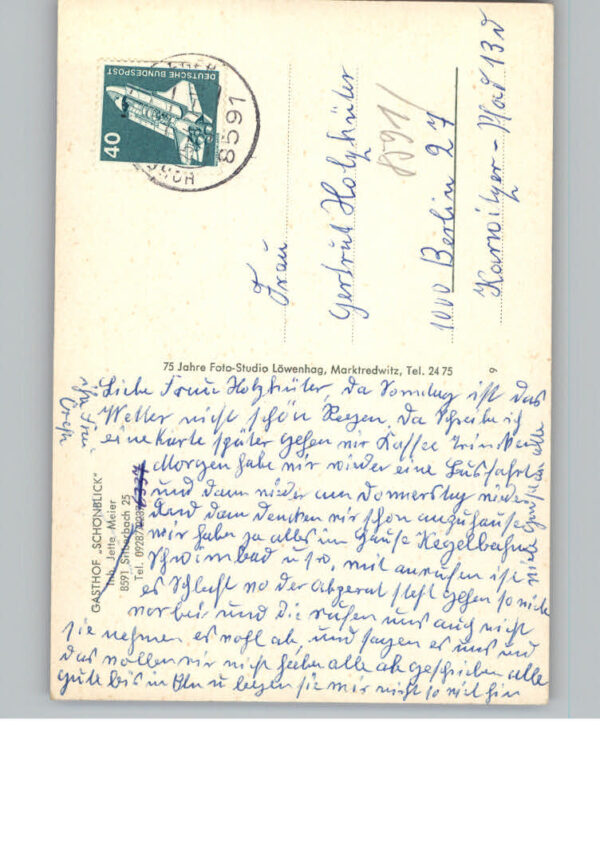 DEUTSCHE BUNDESPOST
40
8591
8591/
Frau
Gertrud Holzhüter
1000 Berlin 27
Karwitzer-Pfad 13d
75 Jahre Foto-Studio Löwenhag, Marktredwitz, Tel. 2475
9
GASTHOF „SCHÖNBLICK"
Inh. Jette Meier
8591
Tel. 09287/
Liebe Frau Holzhüter, da Sonntag ist das
Wetter nicht schön Regen. Da schreibe ich
eine Karte später gehen wir Kaffee trinken
Morgen habe wir wieder eine Busfahrt
und dann wieder am Donnerstag wieder
und dann denken wir schon anzuhause
wir haben ja alles im Hause Kegelbahn
Schwimbad usw, mit anrufen ist
es schlecht wo der Abperat steht gehen so
vorbei und die rufen uns auch nicht
sie nehmen es wohl ab, und sagen es uns und
das wollen wir nicht haben alle ab geschrieben alle
gute bis in Bln u
ihre Frau